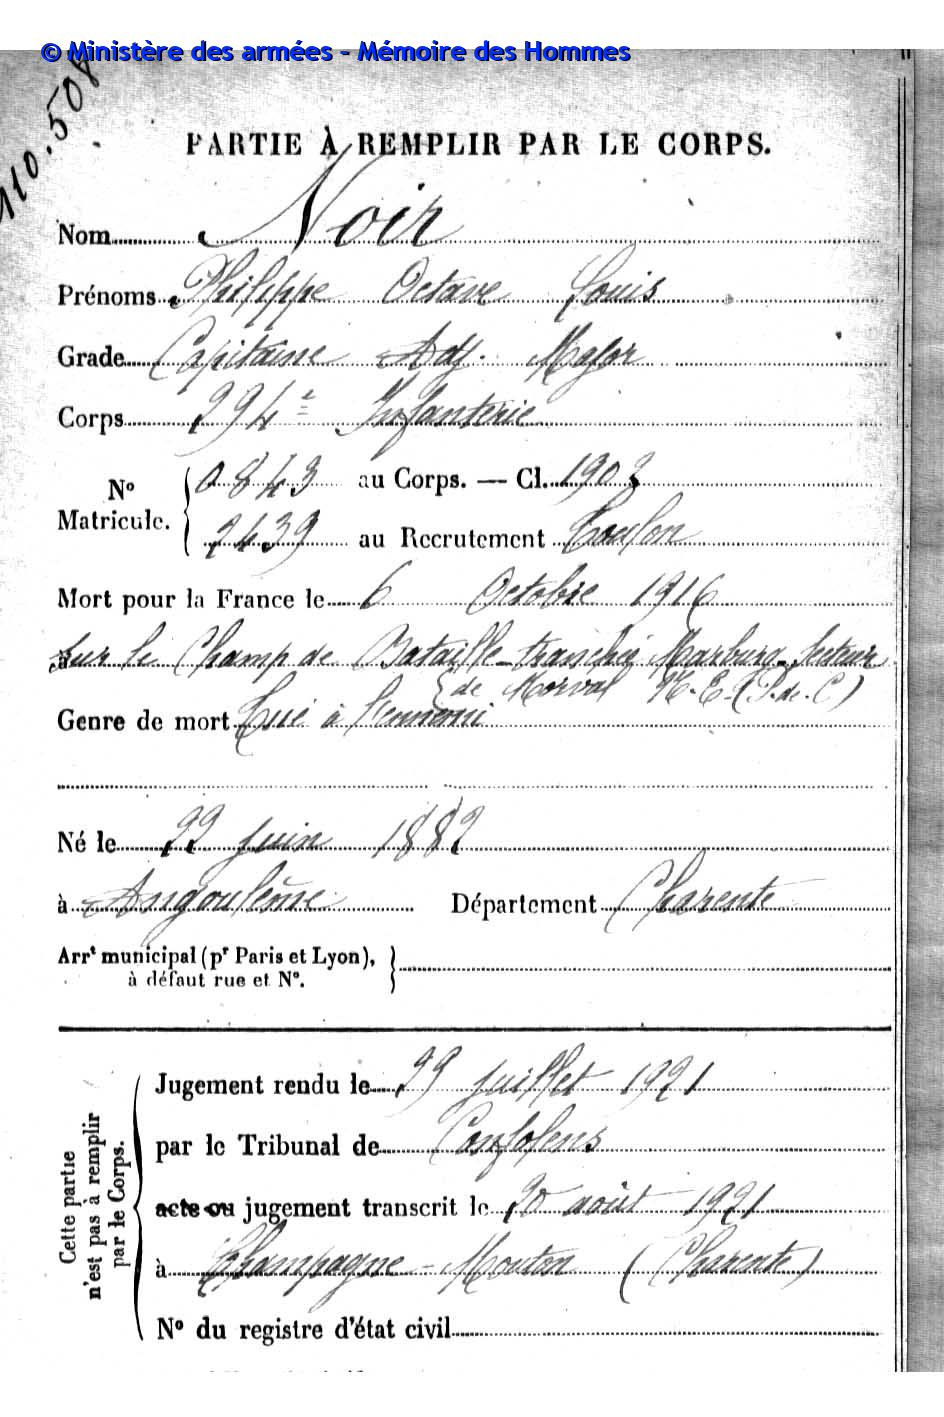 © Ministère des armées - Mémoire des Hommes
110.508
PARTIE À REMPLIR PAR LE CORPS.
Nom Noir
Prénoms Philippe Octave Louis
Grade Capitaine Adj. Major
Corps 294e Infanterie
No Matricule. { 0843 au Corps. — Cl. 1902
2439 au Recrutement Toulon
Mort pour la France le 6 Octobre 1916
à sur le Champ de Bataille - tranchée Marburg - Secteur
de Morval N.E. (P. de. C)
Genre de mort Tué à l'ennemi
Né le 22 juin 1882
à Angoulême Département Charente
Arrt municipal (pr Paris et Lyon),
à défaut rue et No.
Cette partie
n'est pas à remplir
par le Corps.
Jugement rendu le 29 juillet 1921
par le Tribunal de Confolens
acte ou jugement transcrit le 20 août 1921
à Champagne - Mouton (Charente)
No du registre d'état civil